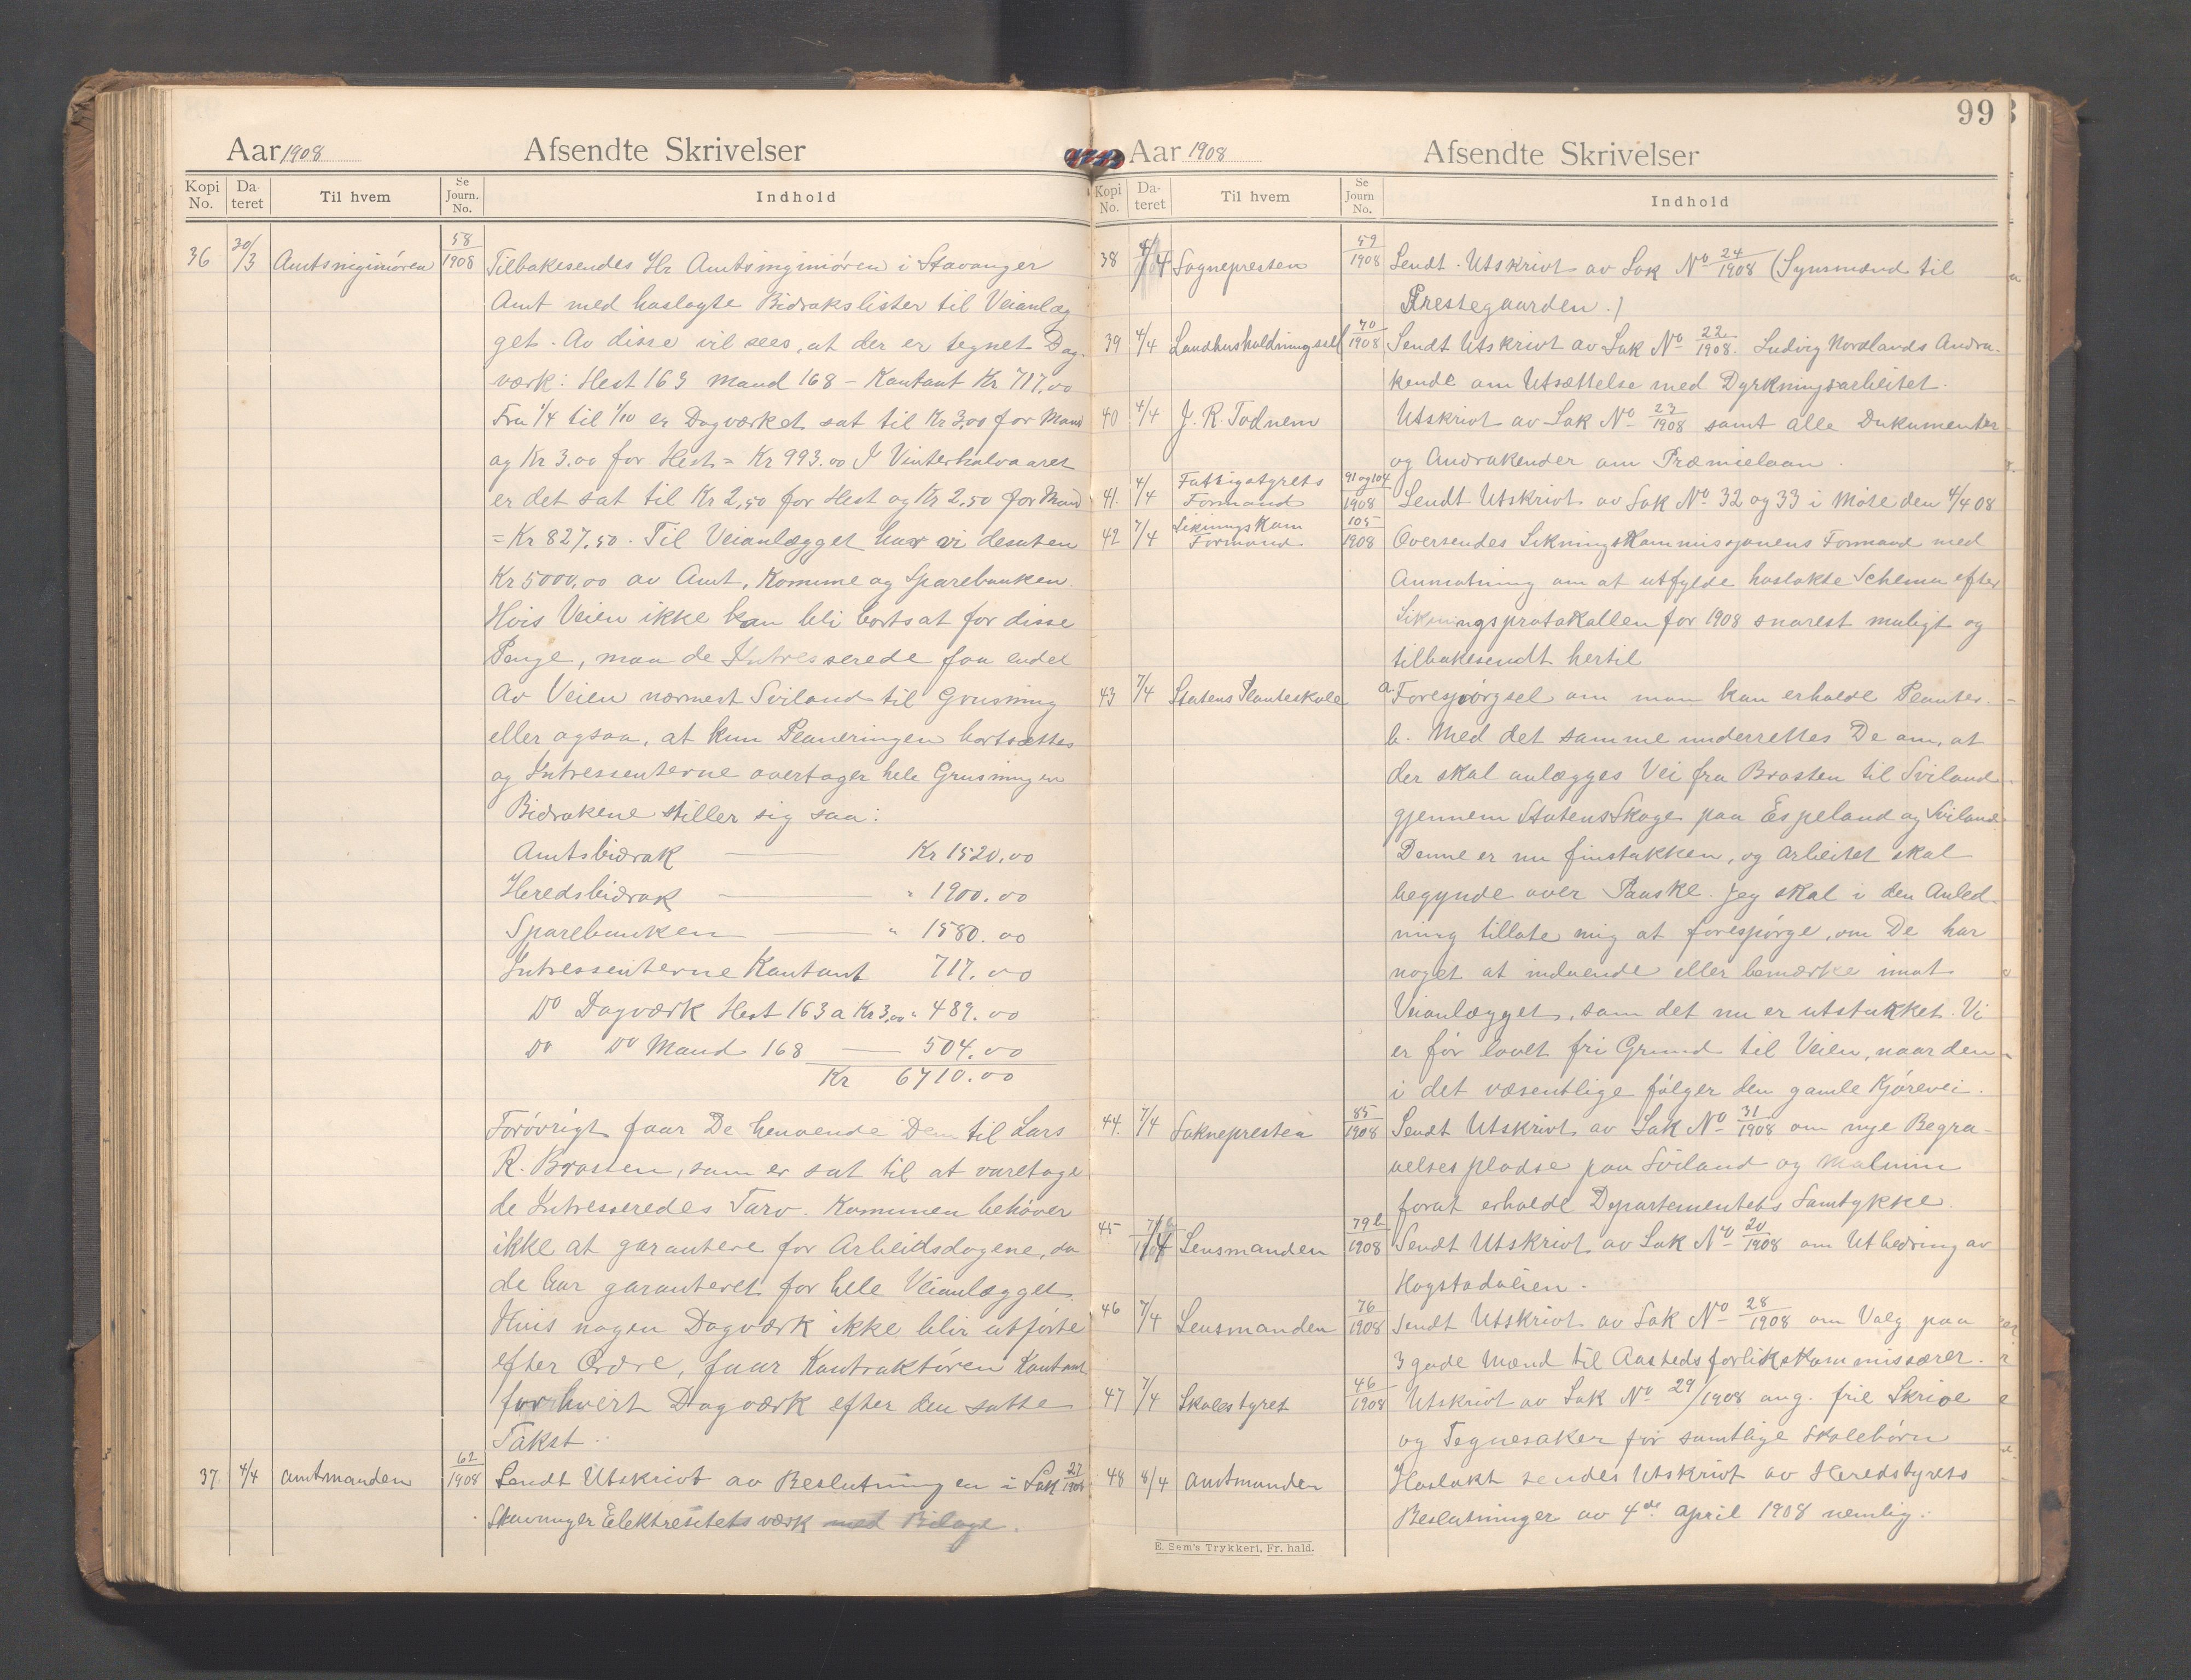 Aar 1908 Afsendte Skrivelser
Kopi No. Da-teret Til hvem Se Journ. No. Indhold
36 30/3 Amtsinginiören 58/1908 Tilbakesendes Hr Amtsinginiören i Stavanger
Amt med haslagte Bidrakslister til Veianlæg
get. Av disse vil sees, at der er tegnet Dag-
værk: Hest 163 Mand 168 – Kontant Kr 717,00
Fra 1/4 til 1/10 er Dagværket sat til Kr 3,00 for Mand
og Kr 3.00 for Hest = Kr 993.00 I Vinterhalvaaret
er det sat til Kr 2,50 for Hest og Kr 2,50 for Mand
= Kr 827,50. Til Veianlægget har vi desuten
Kr 5000,00 av Amt, Komune og Sparebanken.
Hvis Veien ikke kan bli bortsat for disse
Penge, maa de Intresserede faa endel
Av Veien nærmest Sviland til Grusning
eller ogsaa, at kun Planeringen bortsættes
og Intressenterne overtager hele Grusningen
Bidrakene stiller sig saa:
Amtsbidrak — Kr 1520,00
Heredsbidrak — " 1900.00
Sparebanken — " 1580.00
Intressenterne Kontant 717.00
Do Dagværk Hest 163 a Kr 3,00 " 489.00
Do Do Mand 168 — 504.00
Kr 6710.00
Forövrigt faar De henvende Dem til Lars
R. Brasten, som er sat til at varetage
de Intresseredes Tarv. Komunen behöver
ikke at garantere for Arbeidsdagene, da
de har garanteret for hele Veianlægget.
Hvis nogen Dagværk ikke blir utförte
efter Ordre, faar Kontraktören Kontant
for hvert Dagværk efter den satte
Takst.
37 4/4 Amtmanden 62/1908 Sendt Utskrivt av Beslutningen i Sak 27/1908
Stavanger Elektresitetsværk med Bilage.
99
Aar 1908 Afsendte Skrivelser
Kopi No. Da-teret Til hvem Se Journ No. Indhold
38 4/4 Sognepresten 59/1908 Sendt Utskrivt av Sak No 24/1908 (Synsmænd til
Prestegaarden.)
39 4/4 Landhusholdningselk 70/1908 Sendt Utskrivt av Sak No 22/1908. Ludvig Nordlands Andra-
kende om Utsættelse med Dyrkningsarbeitet.
40 4/4 J. R. Todnem Utskrivt av Sak No 23/1908 samt alle Dokumenter
og Andrakender om Præmielaan.
41. 4/4 Fattigstyrets Formand 91 og 104/1908 Sendt Utskrivt av Sak No 32 og 33 i Möte den 4/4 08
42 7/4 Likningskom Formand 105/1908 Oversendes Likningskommissjonens Formand med
Anmotning om at utfylde haslakte Schema efter
Likningsprotokollen for 1908 snarest muligt og
tilbakesendt hertil
43 7/4 Statens Planteskole a. Forespörgsel om man kan erholde Planter.
b. Med det samme underrettes De om, at
der skal anlægges Vei fra Brasten til Sviland
gjennem Statens Skoge paa Espeland og Sviland.
Denne er nu finstukken, og arbeitet skal
begynde over Paaske. Jeg skal i den Anled-
ning tillate mig at forespörge, om De har
noget at indvende eller bemærke imot
Veianlægget, som det nu er utstukket. Vi
er för lovet fri Grund til Veien, naar den
i det væsentlige fölger den gamle Kjörevei.
44. 7/4 Saknepresten 85/1908 Sendt Utskrivt av Sak No 31/1908 om nye Begra-
velsesplodse paa Sviland og Malmim
forat erholde Departementets Samtykke.
45 7/4 Lensmanden 79b/1908 Sendt Utskrivt av Sak No 20/1908 om Utbedring av
Hogstadveien.
46 7/4 Lensmanden 76/1908 Sendt Utskrivt av Sak No 28/1908 om Valg paa
3 gode Mænd til Aasteds forlikskommissærer.
47 7/4 Skolestyret 46/1908 Utskrivt av Sak No 29/1908 ang. frie Skrive
og Tegnesaker för samtlige Skolebörn
48 8/4 Amtmanden Haslakt sendes Utskrivt av Heredstyrets
Beslutninger av 4de April 1908 nemlig:
E. Sem's Trykkeri, Fr. hald.